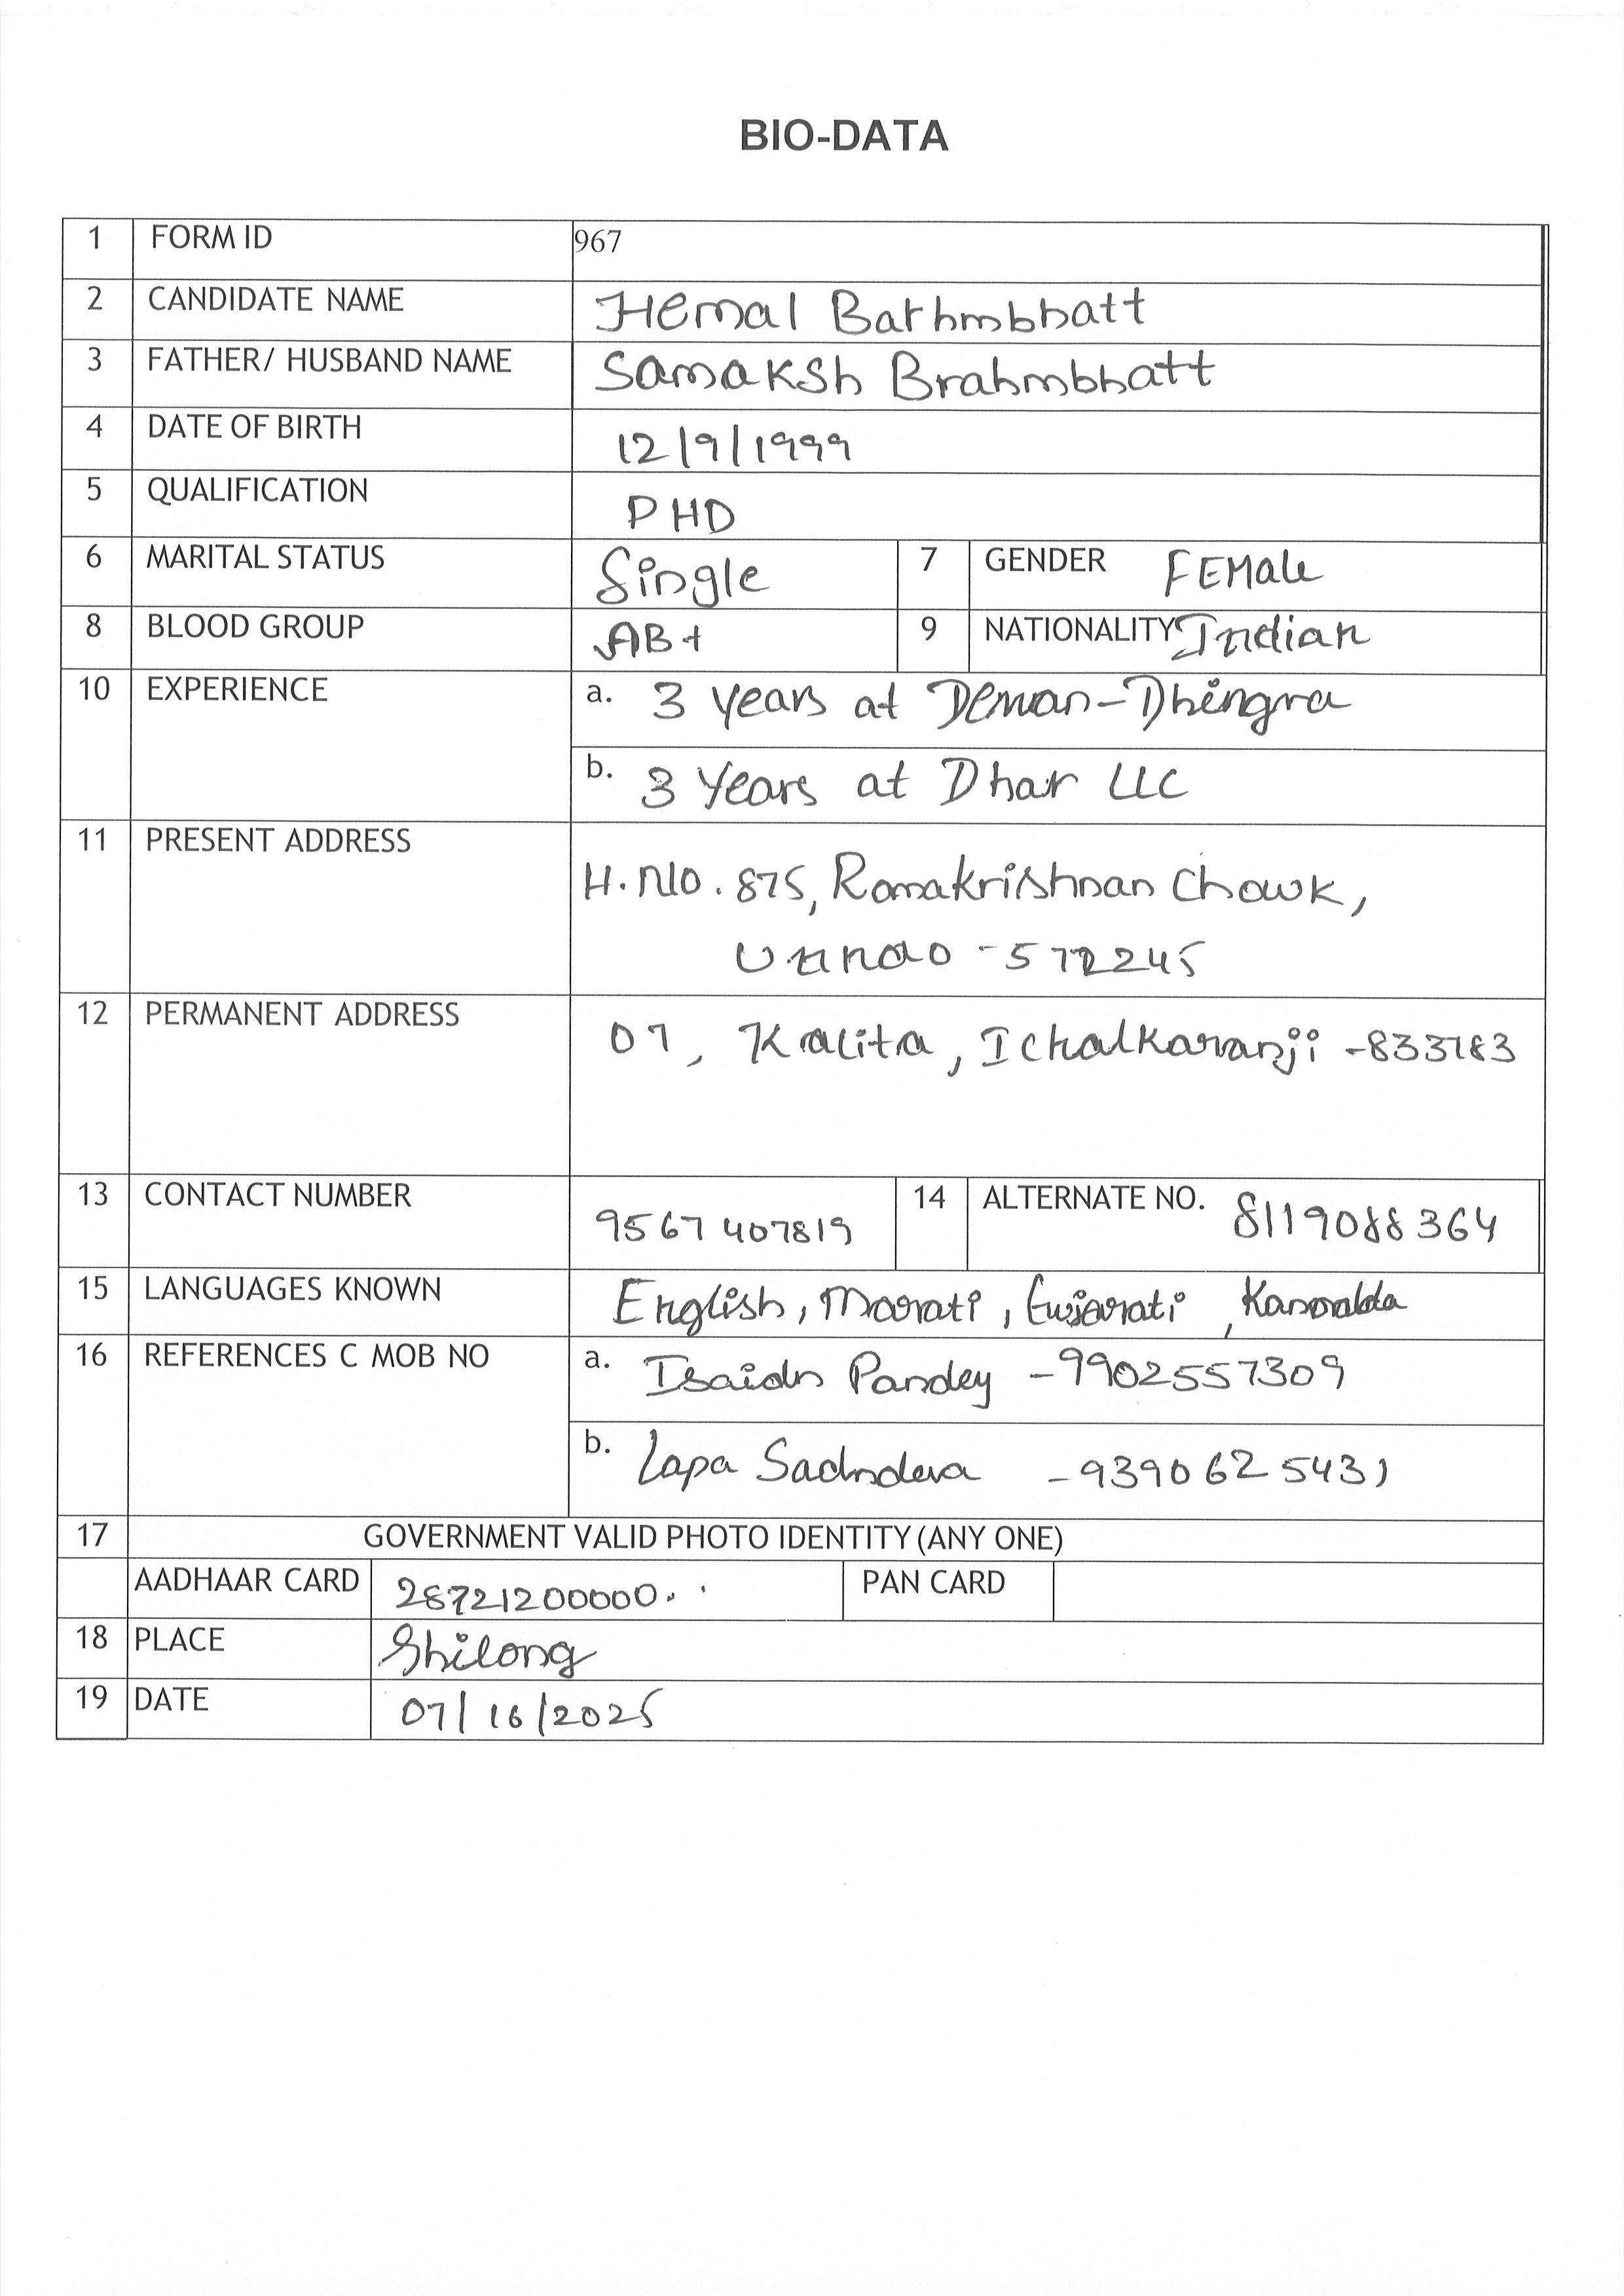 BIO-DATA
1 FORM ID 967
2 CANDIDATE NAME Hemal Barhmbhatt
3 FATHER/ HUSBAND NAME Samaksh Brahmbhatt
4 DATE OF BIRTH 12/9/1999
5 QUALIFICATION PHD
6 MARITAL STATUS Single 7 GENDER FEMale
8 BLOOD GROUP AB+ 9 NATIONALITY Indian
10 EXPERIENCE a. 3 years at Dewan-Dhingra
b. 3 Years at Dhar LLC
11 PRESENT ADDRESS
H.NO. 875, Ramakrishnan Chowk,
Unnao - 572245
12 PERMANENT ADDRESS 07, Kalita, Ichalkaranji -833183
13 CONTACT NUMBER 9567407819 14 ALTERNATE NO. 8119088364
15 LANGUAGES KNOWN English, Maarati, Gujarati,
16 REFERENCES C MOB NO a. Pandey -9902557309
b. Sachdeva -9390625431
17 GOVERNMENT VALID PHOTO IDENTITY (ANY ONE)
AADHAAR CARD 28721200000.. PAN CARD
18 PLACE Shilong
19 DATE 07/16/2025